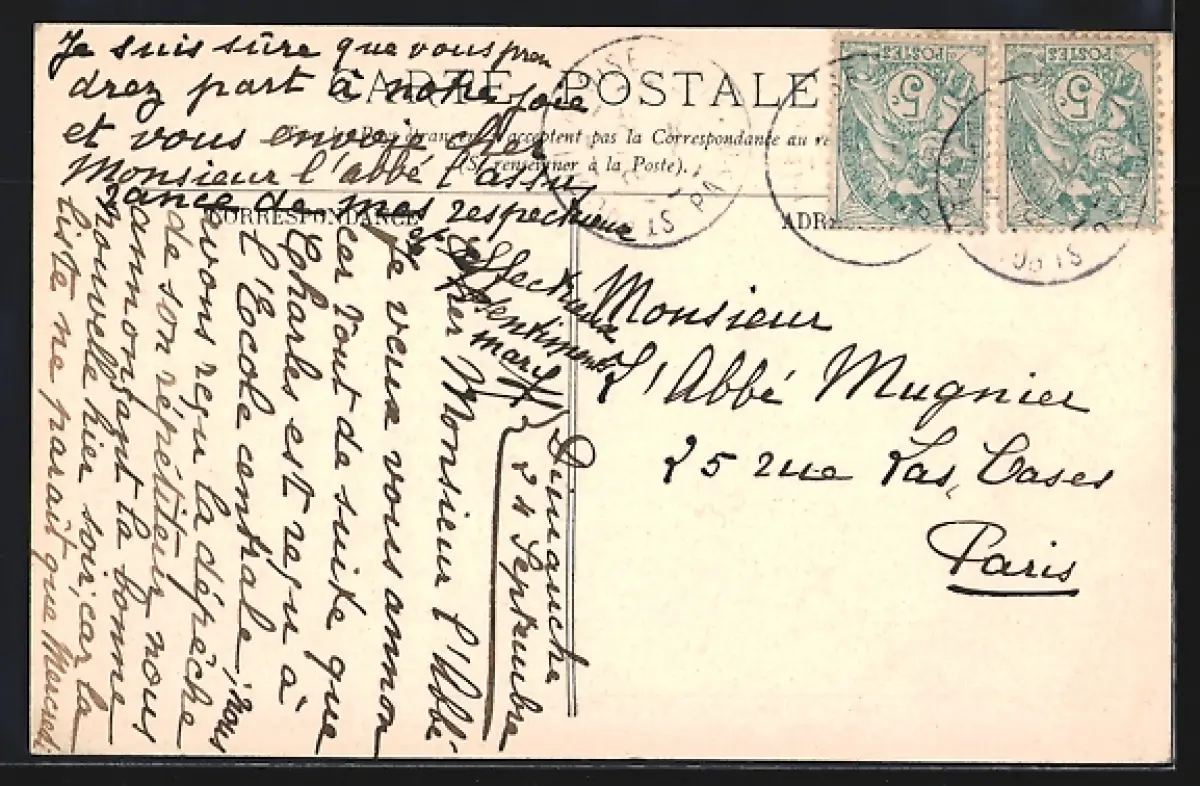 CARTE POSTALE
(Tous les Pays étrangers n'acceptent pas la Correspondance au
(Se renseigner à la Poste).
CORRESPONDANCE
ADRESSE
POSTES
5
POSTES
5
Dimanche
24 Septembre
Cher Monsieur l'Abbé
Je veux vous annon
cer tout de suite que
Charles est reçu à
l'Ecole centrale, nous
avons reçu la dépêche
de son répétiteur nous
annonçant la bonne
nouvelle hier soir, car la
liste ne paraît que Mercredi
Je suis sûre que vous pren
drez part à notre joie
et vous envoie cher
Monsieur l'abbé l'assu
rance de mes respectueux
et affectueux
sentiments
Mary
Monsieur
L'Abbé Mugnier
25 rue Las, Cases
Paris